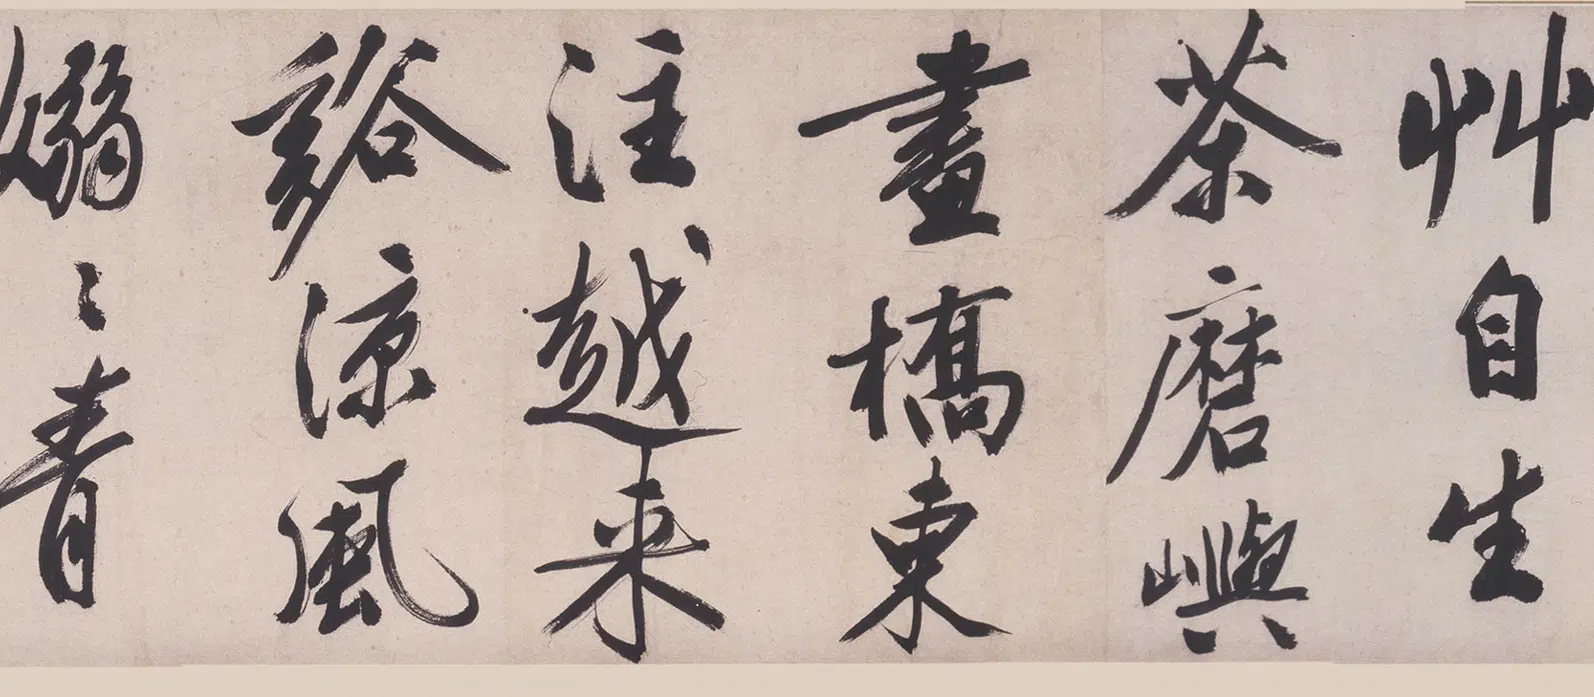 艸自生
茶磨嶼
畫橋東
注越来
谿涼風
嫋〻青